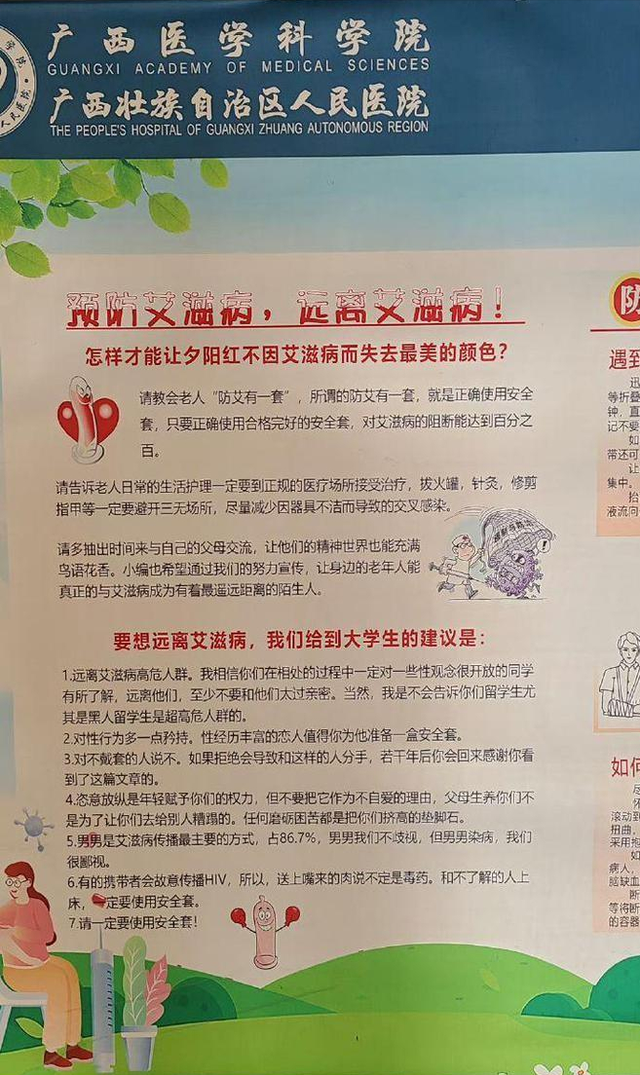 广西医学科学院
GUANGXI ACADEMY OF MEDICAL SCIENCES
广西壮族自治区人民医院
THE PEOPLE'S HOSPITAL OF GUANGXI ZHUANG AUTONOMOUS REGION
预防艾滋病，远离艾滋病！
怎样才能让夕阳红不因艾滋病而失去最美的颜色？
请教会老人“防艾有一套”，所谓的防艾有一套，就是正确使用安全
套，只要正确使用合格完好的安全套，对艾滋病的阻断能达到百分之
百。
请告诉老人日常的生活护理一定要到正规的医疗场所接受治疗，拔火罐，针灸，修剪
指甲等一定要避开三无场所，尽量减少因器具不洁而导致的交叉感染。
请多抽出时间来与自己的父母交流，让他们的精神世界也能充满
鸟语花香。小编也希望通过我们的努力宣传，让身边的老年人能
真正的与艾滋病成为有着最遥远距离的陌生人。
要想远离艾滋病，我们给到大学生的建议是：
1.远离艾滋病高危人群。我相信你们在相处的过程中一定对一些性观念很开放的同学
有所了解，远离他们，至少不要和他们太过亲密。当然，我是不会告诉你们留学生尤
其是黑人留学生是超高危人群的。
2.对性行为多一点矜持。性经历丰富的恋人值得你为他准备一盒安全套。
3.对不戴套的人说不。如果拒绝会导致和这样的人分手，若干年后你会回来感谢你看
到了这篇文章的。
4.恣意放纵是年轻赋予你们的权力，但不要把它作为不自爱的理由，父母生养你们不
是为了让你们去给别人糟蹋的。任何磨砺困苦都是把你们挤高的垫脚石。
5.男男是艾滋病传播最主要的方式，占86.7%，男男我们不歧视，但男男染病，我们
很鄙视。
6.有的携带者会故意传播HIV，所以，送上嘴来的肉说不定是毒药。和不了解的人上
床，一定要使用安全套。
7.请一定要使用安全套！
防
遇到
迅
等折叠
钟，直
记不要
如
带还可
让
集中。
抬
液流向
如何
尽
滚动到
扭曲。
采用抱
如
病人，
脑缺血
断
等将断
的容器